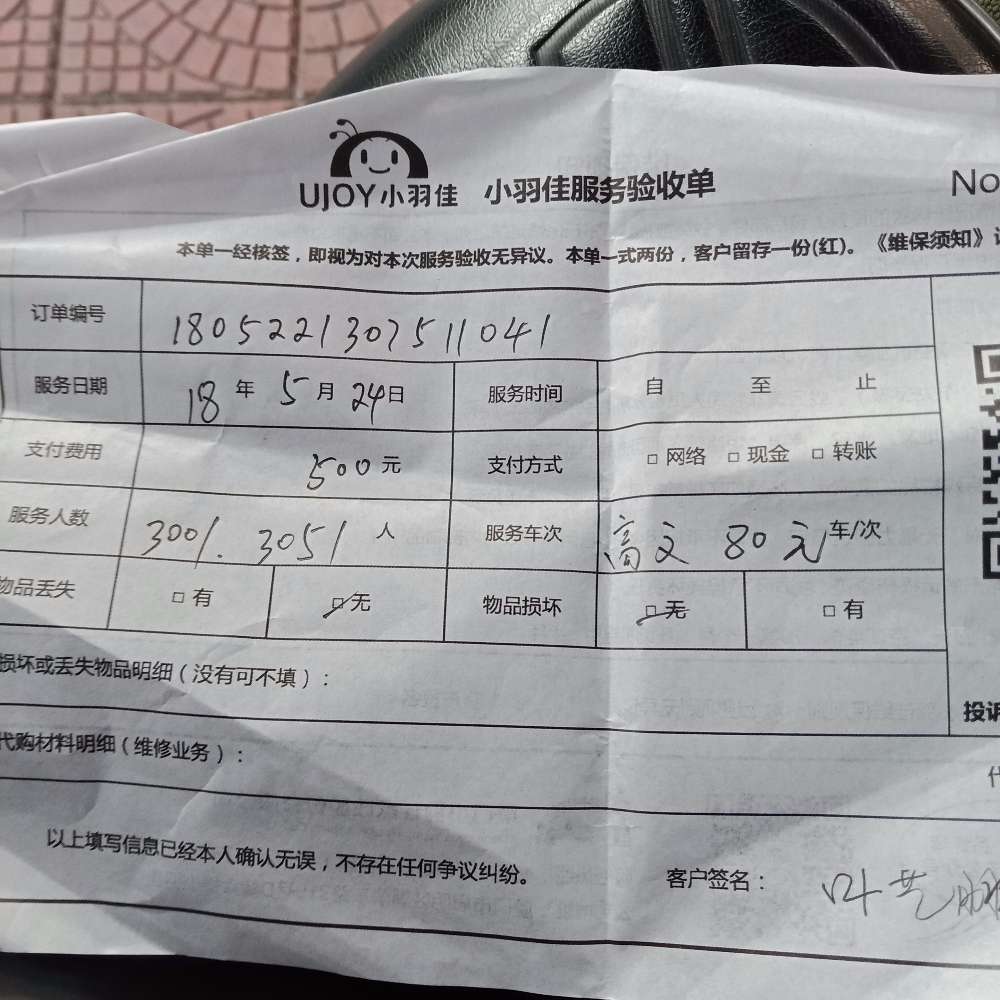 UJOY小羽佳 小羽佳服务验收单 No
本单一经核签，即视为对本次服务验收无异议。本单一式两份，客户留存一份(红)。《维保须知》
订单编号 1805221307511041
服务日期 18 年 5 月 24 日 服务时间 自 至 止
支付费用 500 元 支付方式 □ 网络 □ 现金 □ 转账
服务人数 3001. 3051 人 服务车次 高文 80 元 车/次
物品丢失 □ 有 □ 无 物品损坏 □ 无 □ 有
损坏或丢失物品明细（没有可不填）：
投诉
代购材料明细（维修业务）：
以上填写信息已经本人确认无误，不存在任何争议纠纷。
客户签名： 叶艺